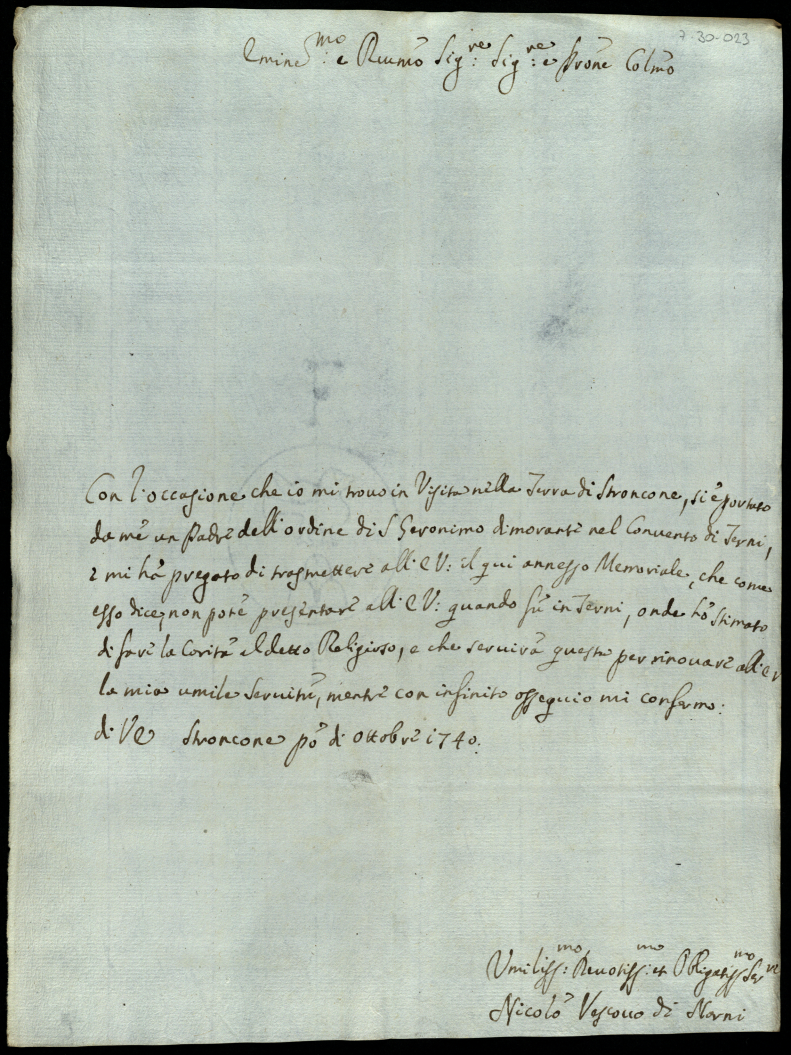 7-30-023
Emine:mo e Reumo Sig:re Sig:re e Prone Colmo
Con l'occasione che io mi trouo in Visita nella Terra di Stroncone, si è portato
da mè un Padre dell'ordine di S Geronimo dimorante nel Conuento di Terni,
e mi hà pregato di trasmettere all'EV: il qui annesso Memoriale, che come
esso dice, non potè presentare all'EV: quando fù in Terni, onde hò stimato
di fare la Carità al detto Religioso, e che seruirà questa per rinouare all'EV
la mia umile seruitù, mentre con infinito ossequio mi confermo:
di VE Stroncone pō di Ottobre 1740:
Umiliss:mo Deuotiss:mo et Obligatiss:mo Serre
Nicolò Vescouo di Narni